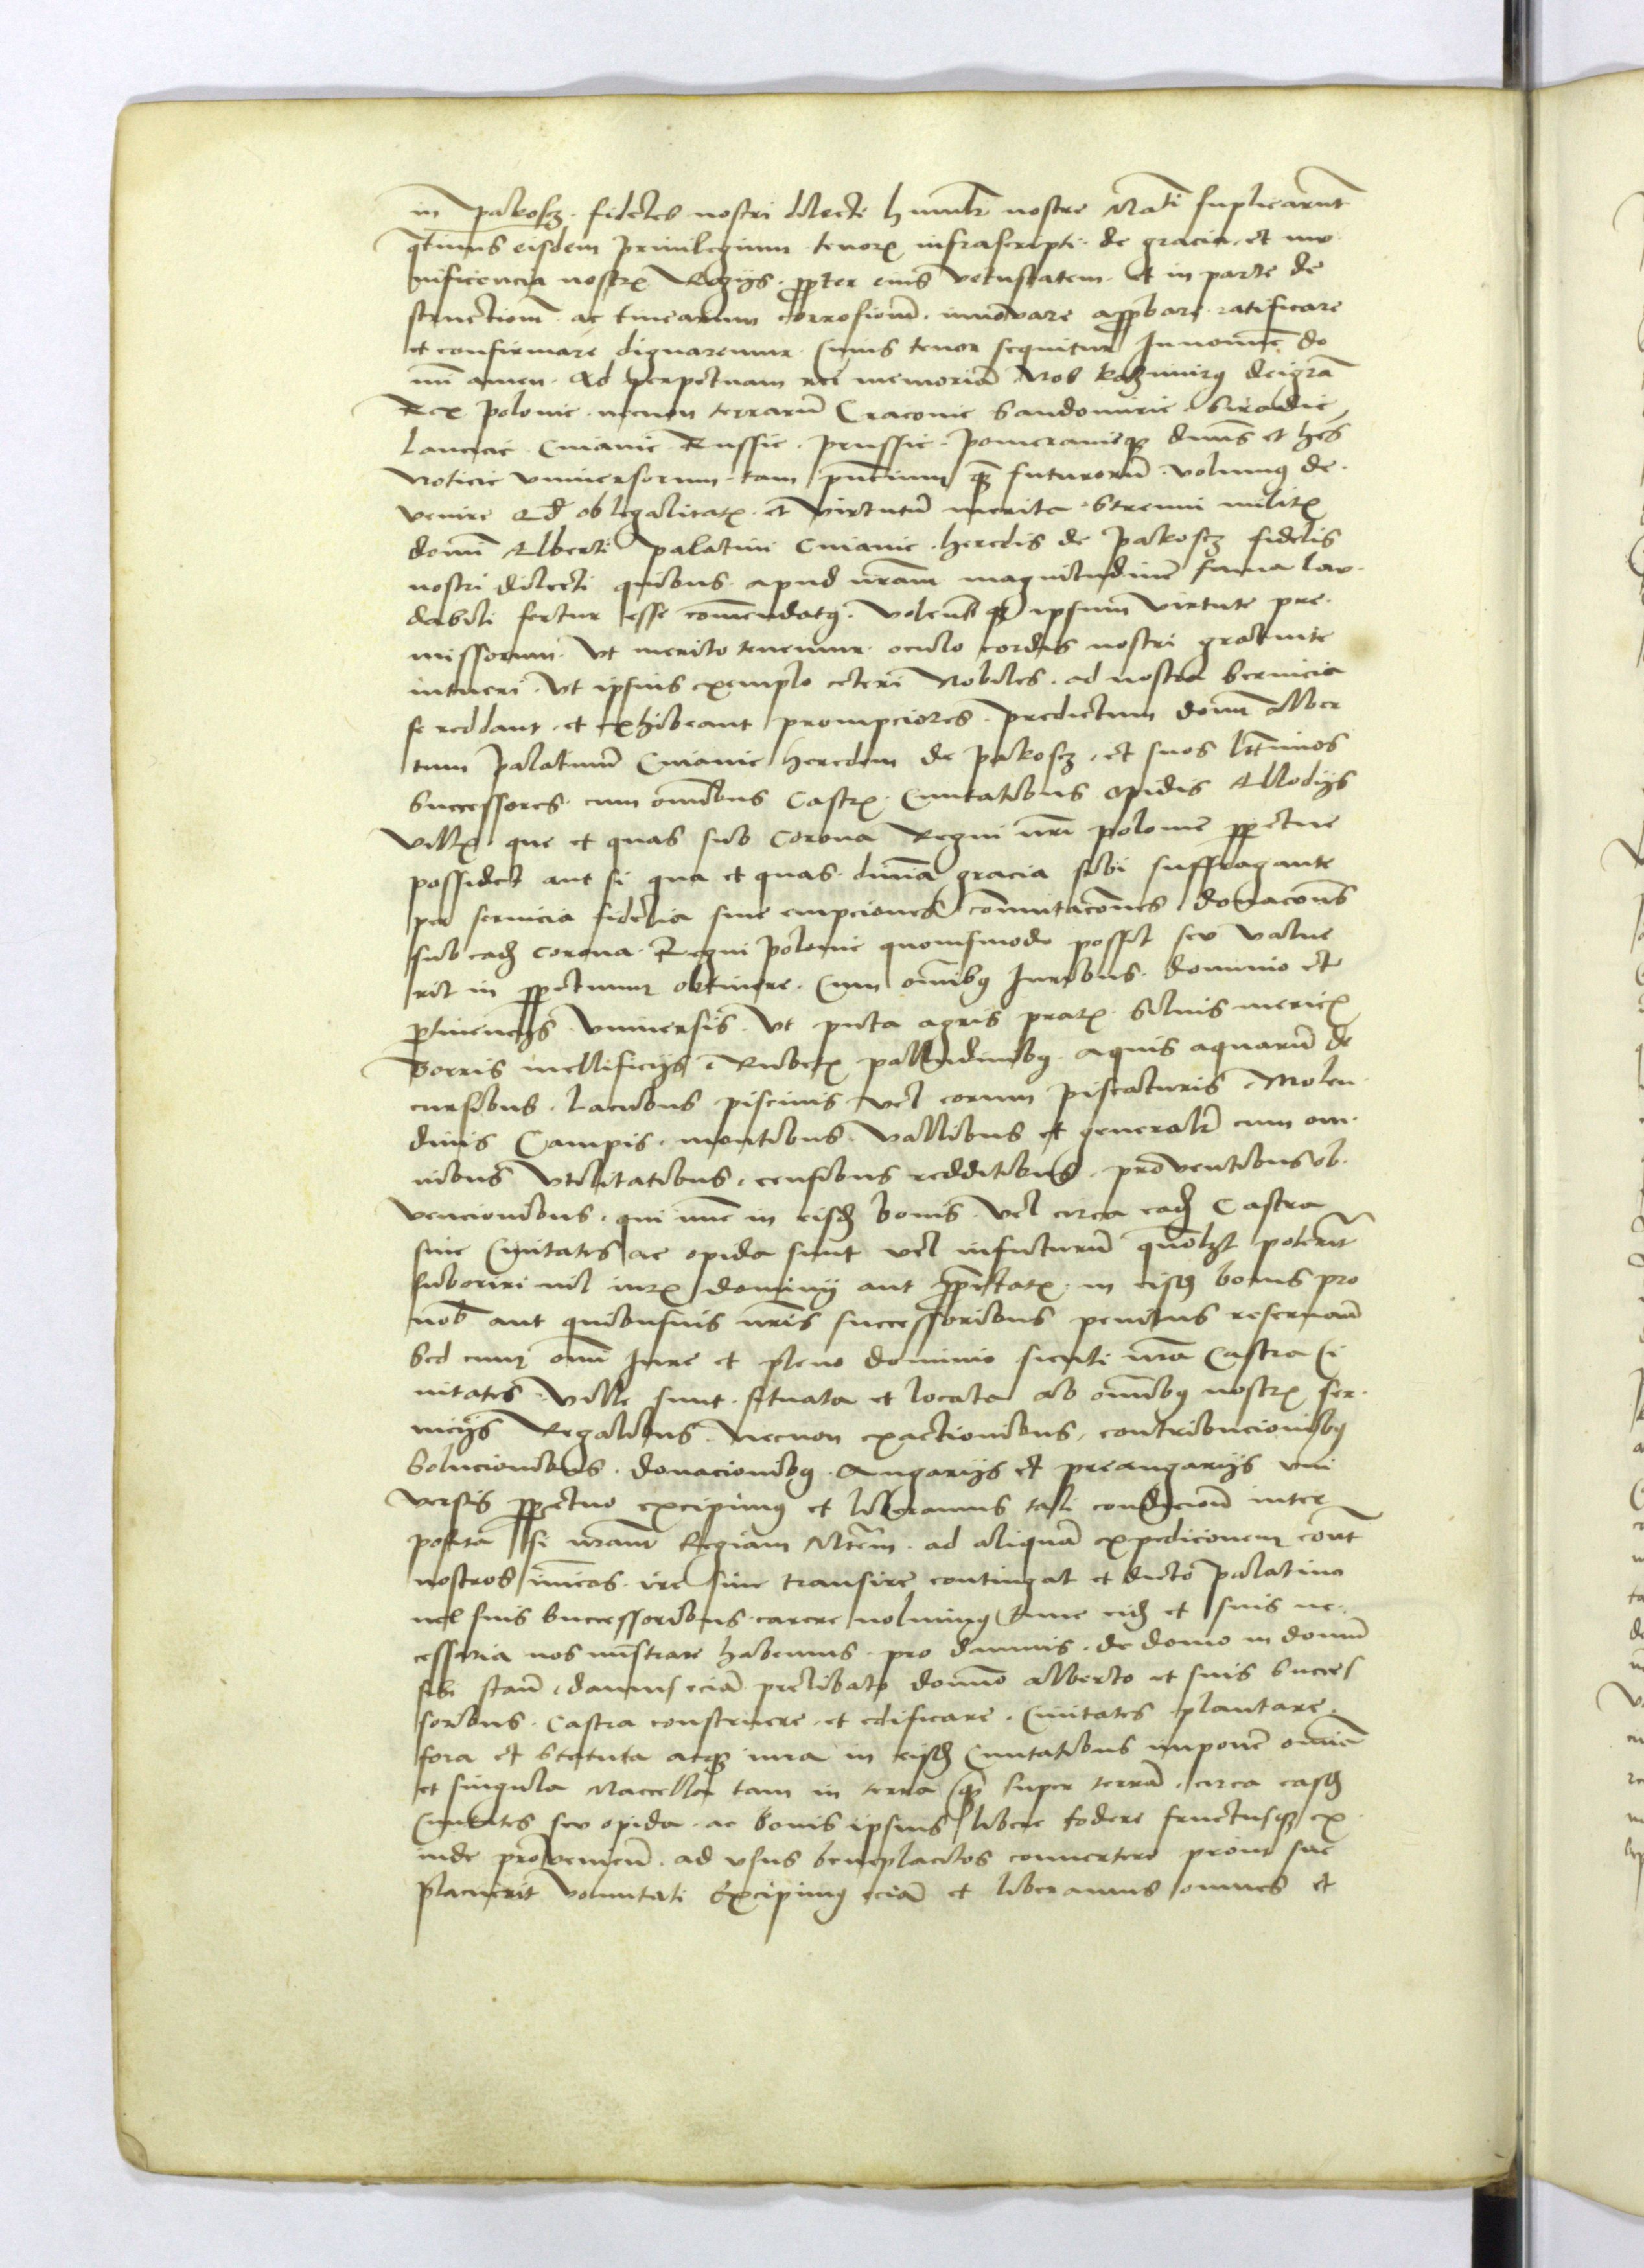 in pakosch. fideles nostri dilecti humilr nostre Mati suplicarunt
qtinus eisdem privilegium tenoris infrascripti de gracia et mu
nificencia nostris Regijs. propter eius vetustatem. et in parte de
structionem ac tinearum corrosionem. innovare approbare ratificare
et confirmare dignaremur. Cuius tenor sequitur In nomine do
mi amen. Ad perpetuam rei memoriam Nos kazimirus dei gra
Rex polonie. necnon terrarum Cracovie Sandomirie. Siradie
lancicie. Cuiavie Russie. prussie. pomeranieque dnus et hes
Noticie universorum tam pntium quam futurorum. volumus de
venire Qd ob legalitatis et virtutum merita strenui militis
domi Alberti palatini Cuiavie. heredis de pakosch fidelis
nostri dilecti quibus apud nram magnitudinem fama lau
dabili fertur esse comendatus. Volentes ipsum virtute pre
missorum. Ut merito tenemur. oculo cordis nostri gratuite
intueri. Ut ipsius exemplo ceteri Nobiles. ad nostra servicia
se reddant. et exhibeant prompciores. predictum dom alber
tum palatinum Cuiavie heredem de pakosch. et suos ltimos
Successores. cum omibus Castris. Civitatibus opidis Allodijs
villis que et quas sub Corona Regni nri polonie perpetue
possidet aut si qua et quas. divina gracia sibi suffragante
per servicia fidelia sive empciones comutacones donacones
sub eadem corona. Regni polonie quovismodo possit seu value
rit in perpetuum obtinere. Cum omibus Juribus. dominio et
ptinencijs. Universis. Ut puta agris pratis. Silvis mericis
Borris mellificijs Rubetis palludinibus. aquis aquarum de
cursibus. lacubus piscinis vel eorum piscaturis. Molen
dinis Campis. montibus. vallibus et generalr cum om
nibus utilitatibus. censibus redditibus. proventibus ob
vencionibus. qui nunc in eisdem bonis. vel circa eadem Castra
sive Civitates ac opida sunt vel infuturum quolzt poterit
suboriri nil iuris dominij aut proprietatis in eisdem bonis pro
nob aut quibusvis nris successoribus penitus reservan
Sed cum omi Jure et pleno dominio sicuti nra Castra Ci
vitates. ville sunt situata et locata ab omibus nostris ser
vicijs Regalibus. Necnon exactionibus. contribucionibus
Solucionibus. donacionibus. Angarijs et preangarijs uni
versis perpetuo excipimus et liberamus tali condicione inter
posita si nram Regiam Mtem. ad aliquam expedicionem cont
nostros imicos. ire sive transire contingat et dicto palatino
vel suis Successoribus carere nolumus tunc eidem et suis ne
cessaria nos mistrare habemus. pro damnis. de domo in domum
sibi stan. damus eciam prelibato domino alberto et suis Succes
soribus. Castra construere. et edificare. Civitates plantare.
fora et Statuta atque iura in eisdem Civitatibus imponere omia
et singula Maccella tam in terra quam super terram. circa easdem
Civitates seu opida. ac bonis ipsius libere fodere fructusque ex
inde provenien. ad usus beneplacitos convertere prout sue
placuerit voluntati Excipimus eciam et liberamus omnes et